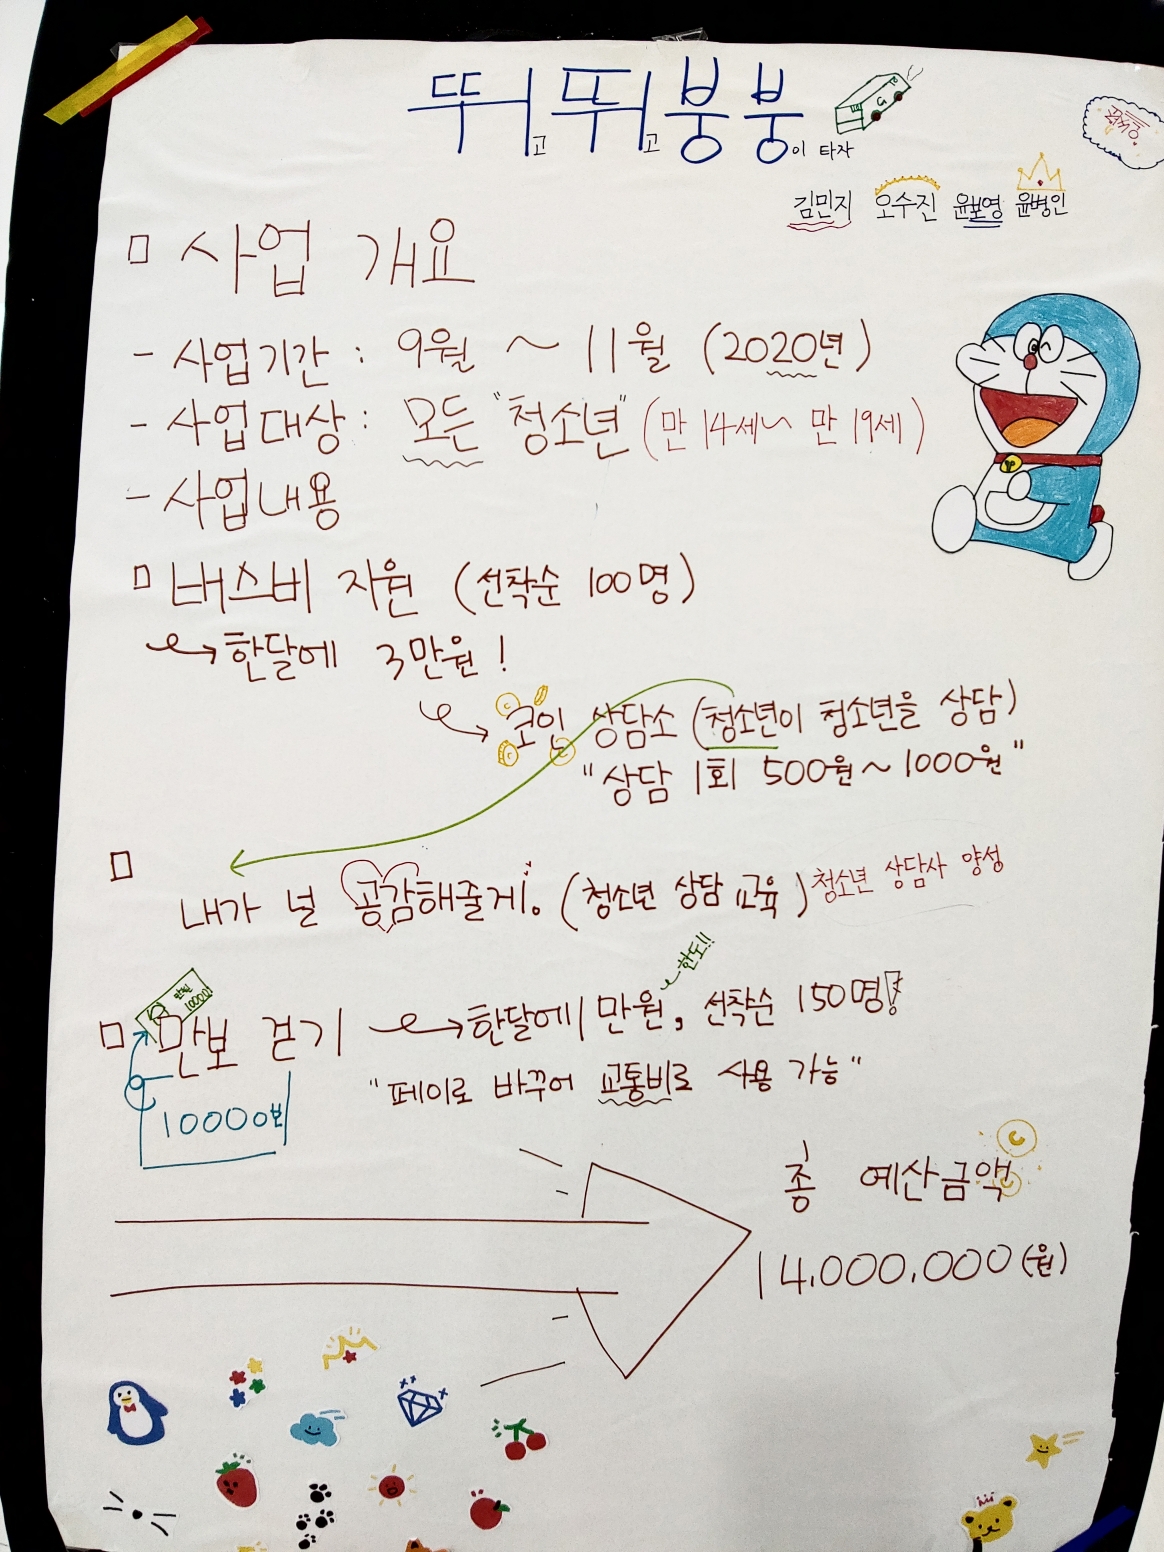 뚜ㅣ고 뚸고 붕붕이 타자
김민지 오수진 윤보영 윤병인
□ 사업 개요
- 사업기간 : 9월 ~ 11월 (2020년)
- 사업대상 : 모든 "청소년" (만 14세~ 만 19세)
- 사업내용
□ 버스비 지원 (선착순 100명)
한달에 3만원!
코인 상담소 (청소년이 청소년을 상담)
"상담 1회 500원~1000원"
□ 내가 널 공감해줄게!. (청소년 상담 교육) 청소년 상담사 양성
한도!!
만원 10000
□ 만보 걷기 → 한달에 1만원, 선착순 150명!
"페이로 바꾸어 교통비로 사용 가능"
10000보
총 예산금액
14,000,000(원)